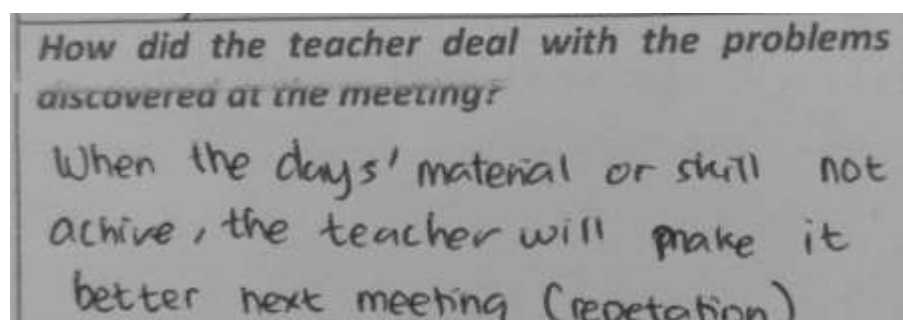 How did the teacher deal with the problems
discovered at the meeting?
When the days' material or skill not
achive, the teacher will make it
better next meeting (repetation)